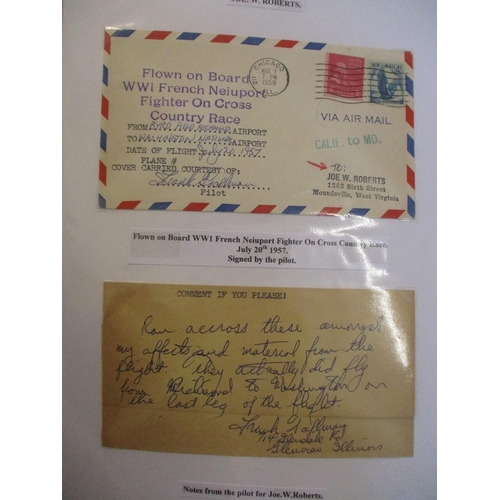 JOE. W. ROBERTS.
Flown on Board
WW1 French Neiuport
Fighter On Cross
Country Race
CHICAGO
7 PM
1958
ILL.
AIR MAIL
VIA AIR MAIL
CALIF. to MD.
FROM AIRPORT
TO Washington National AIRPORT
DATE OF FLIGHT July 20 1957
PLANE #
COVER CARRIED COURTESY OF:
Frank Tallman
Pilot
TO:
JOE W. ROBERTS
1202 Sixth Street
Moundsville, West Virginia
Flown on Board WW1 French Neiuport Fighter On Cross Country Race.
July 20th 1957.
Signed by the pilot.
COMMENT IF YOU PLEASE:
Ran accross these amongst
my affects and material from the
flight. they actually did fly
from Richmond to Washington on
the last leg of the flight.
Frank Tallman
Glendale Rd
Glenview Illinois
Notes from the pilot for Joe.W.Roberts.